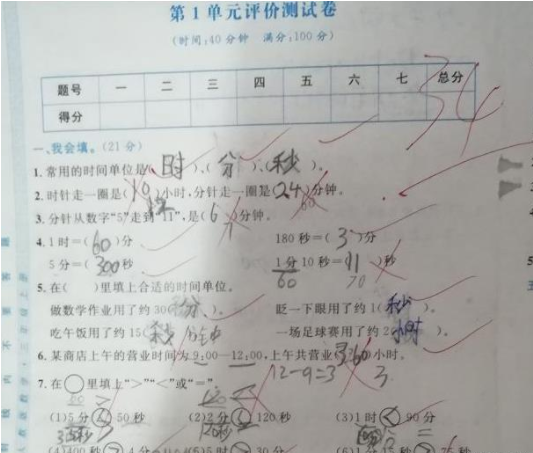 第1单元评价测试卷
(时间:40分钟 满分:100分)
题号 一 二 三 四 五 六 七 总分
得分
34
一、我会填。(21分)
1.常用的时间单位是(时)、(分)、(秒)。
2.时针走一圈是(10)小时,分针走一圈是(24)分钟。
12 60
3.分针从数字“5”走到“11”,是(6)分钟。
4.1时=(60)分 180秒=(3)分
5分=(300秒) 1分10秒=(11)秒
60 70
5.在( )里填上合适的时间单位。
做数学作业用了约30(分)。 眨一下眼用了约1(秒)。
吃午饭用了约15(分钟)。 一场足球赛用了约2(小时)。
6.某商店上午的营业时间为9:00—12:00,上午共营业(360)小时。
12-9=3 3
7.在○里填上“>”“<”或“=”。
(1)5分 < 50秒 (2)2分 < 120秒 (3)1时 < 90分